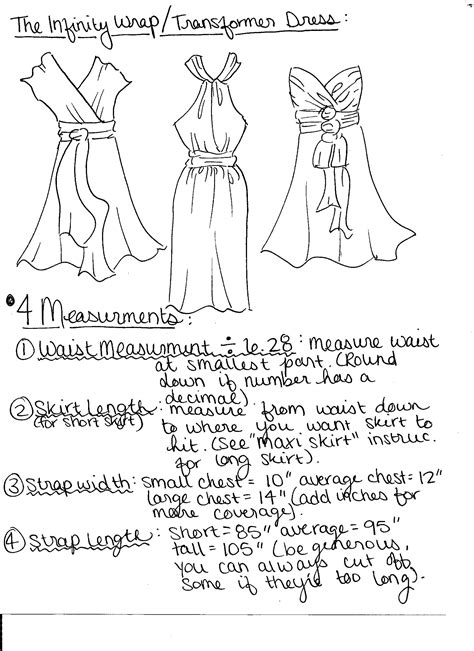 The Infinity Wrap/Transformer Dress:
4 Measurments:
① Waist Measurment ÷ 6.28: measure waist
at smallest part. (Round
down if number has a
decimal)
② Skirt Length: measure from waist down
(for short skirt) to where you want skirt to
hit. (See "maxi skirt" instruc.
for long skirt).
③ Strap width: small chest = 10" average chest = 12"
large chest = 14" (add inches for
more coverage).
④ Strap Length: short = 85" average = 95"
tall = 105" (be generous,
you can always cut off
some if they're too long).